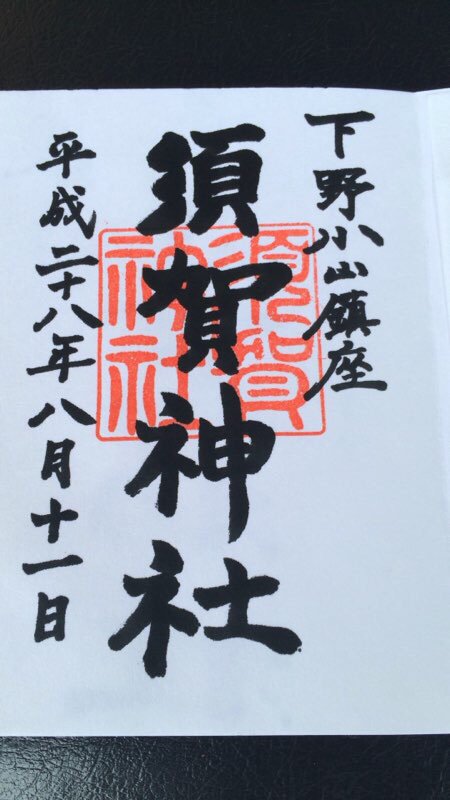 下野小山鎮座
須賀神社
須賀神社
平成二十八年八月十一日